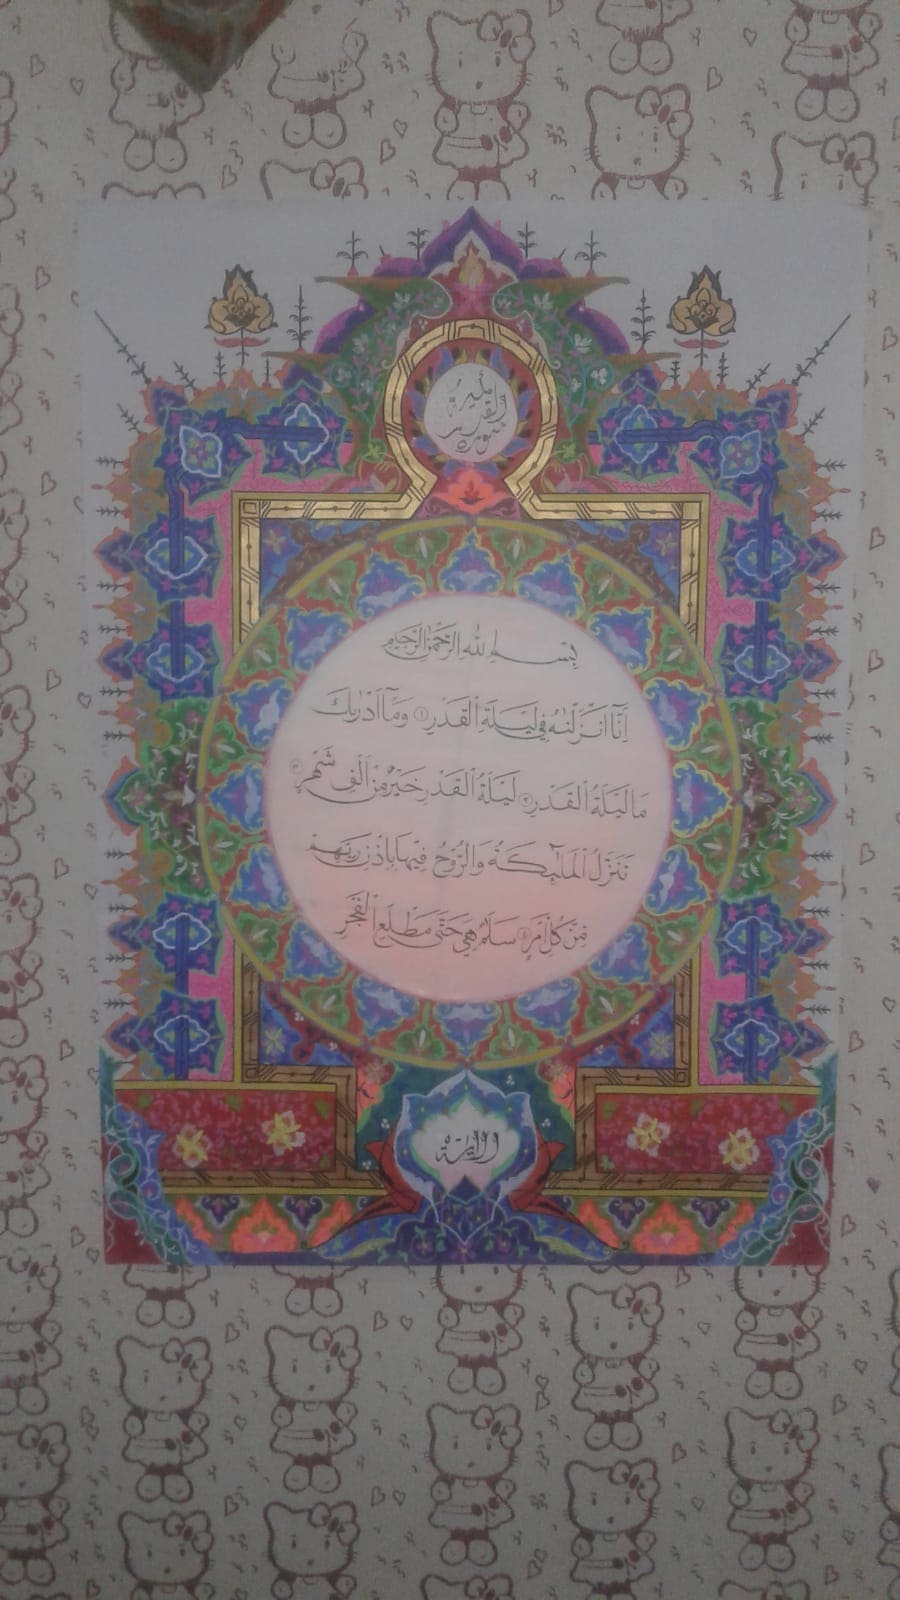 سورة القدر
بسم الله الرحمن الرحيم
اِنَّٓا اَنْزَلْنٰهُ فِي لَيْلَةِ الْقَدْرِ ١ وَمَٓا اَدْرٰيكَ
مَا لَيْلَةُ الْقَدْرِ ٢ لَيْلَةُ الْقَدْرِ خَيْرٌ مِنْ اَلْفِ شَهْرٍ ٣
تَنَزَّلُ الْمَلٰٓئِكَةُ وَالرُّوحُ فِيهَا بِاِذْنِ رَبِّهِمْ
مِنْ كُلِّ اَمْرٍ ٤ سَلَامٌ هِيَ حَتّٰى مَطْلَعِ الْفَجْرِ